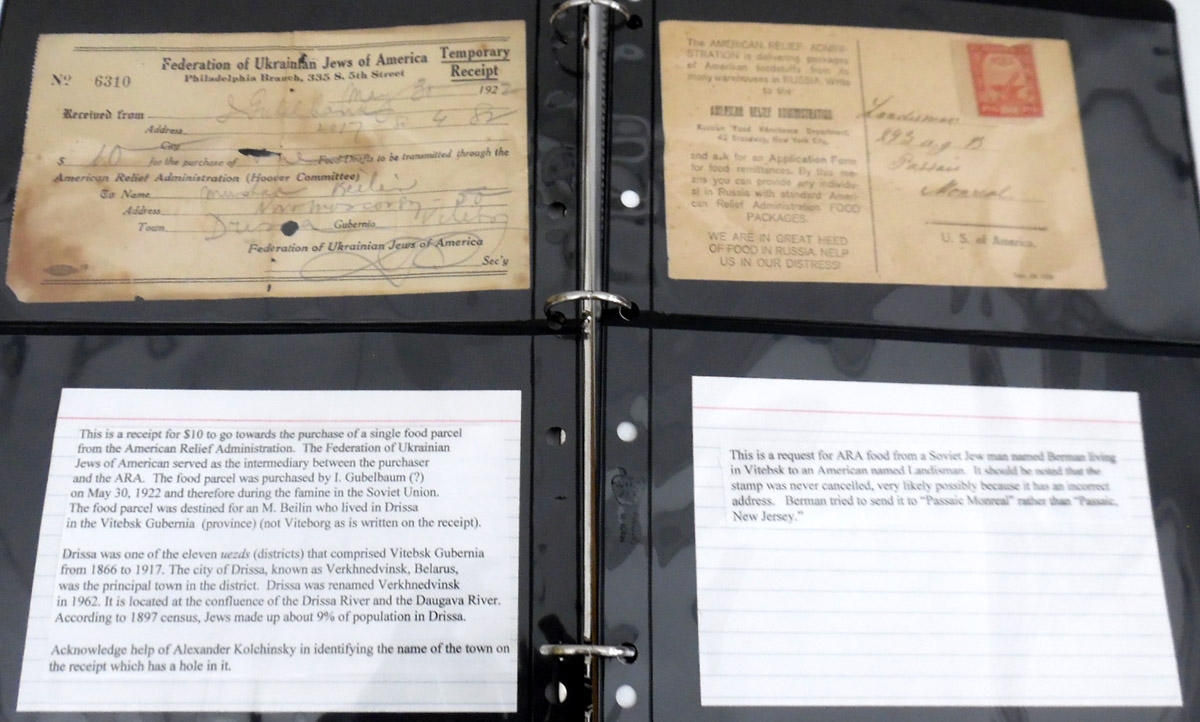 Federation of Ukrainian Jews of America
Philadelphia Branch, 335 S. 5th Street
Temporary
Receipt
No 6310
May 30 1922
Received from
Address
City
$ 10 for the purchase of one Food Drafts to be transmitted through the
American Relief Administration (Hoover Committee)
To Name Beilin
Address
Town Drissa Gubernia
Federation of Ukrainian Jews of America
Sec'y
The AMERICAN RELIEF ADMINI-
STRATION is delivering packages
of American foodstuffs from its
many warehouses in RUSSIA. Write
to the
AMERICAN RELIEF ADMINISTRATION
Russian Food Remittance Department,
42 Broadway, New York City,
and ask for an Application Form
for food remittances. By this me-
ans you can provide any individu-
al in Russia with standard Ameri-
can Relief Administration FOOD
PACKAGES.
WE ARE IN GREAT HEED
OF FOOD IN RUSSIA. NELP
US IN OUR DISTRESS!
Landisman
Passaic
Monreal
U. S. of America.
This is a receipt for $10 to go towards the purchase of a single food parcel
from the American Relief Administration. The Federation of Ukrainian
Jews of American served as the intermediary between the purchaser
and the ARA. The food parcel was purchased by I. Gubelbaum (?)
on May 30, 1922 and therefore during the famine in the Soviet Union.
The food parcel was destined for an M. Beilin who lived in Drissa
in the Vitebsk Gubernia (province) (not Viteborg as is written on the receipt).
Drissa was one of the eleven uezds (districts) that comprised Vitebsk Gubernia
from 1866 to 1917. The city of Drissa, known as Verkhnedvinsk, Belarus,
was the principal town in the district. Drissa was renamed Verkhnedvinsk
in 1962. It is located at the confluence of the Drissa River and the Daugava River.
According to 1897 census, Jews made up about 9% of population in Drissa.
Acknowledge help of Alexander Kolchinsky in identifying the name of the town on
the receipt which has a hole in it.
This is a request for ARA food from a Soviet Jew man named Berman living
in Vitebsk to an American named Landisman. It should be noted that the
stamp was never cancelled, very likely possibly because it has an incorrect
address. Berman tried to send it to "Passaic Monreal" rather than "Passaic,
New Jersey."